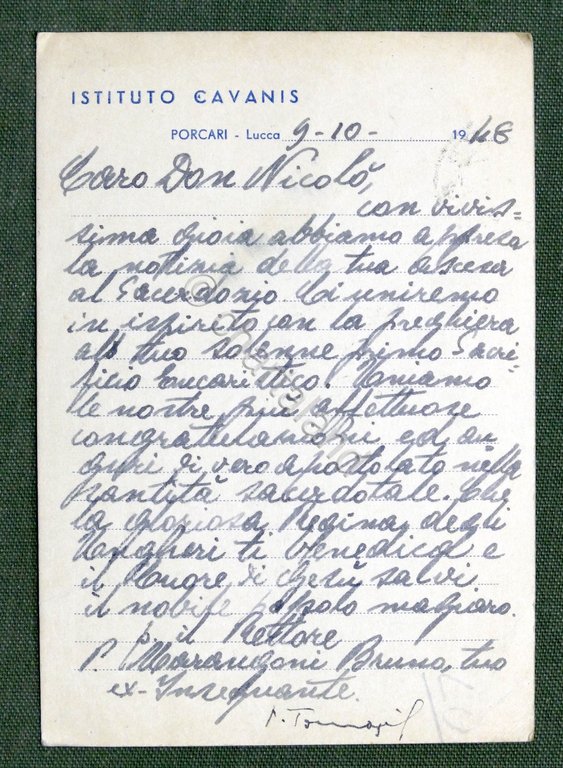 ISTITUTO CAVANIS
PORCARI - Lucca 9-10- 1948
Caro Don Nicolò,
con vivis-
sima gioia abbiamo appresa
la notizia della tua ascesa
al Sacerdozio. Ci uniremo
in ispirito con la preghiera
al tuo solenne primo Sacri-
ficio Eucaristico. Uniamo
le nostre più affettuose
congratulazioni ed au
guri di vero apostolato nella
santità sacerdotale. Che
la gloriosa Regina degli
Ungheri ti benedica e
il Cuore di Gesù salvi
il nobile popolo magiaro.
p. il Rettore
P. Marangoni Bruno tuo
ex-Insegnante.